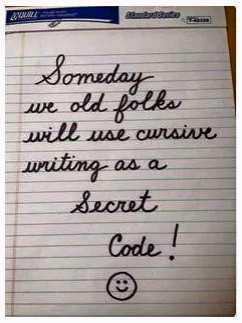 QUILL Standard Series T-63326
Someday
we old folks
will use cursive
writing as a
Secret
Code!